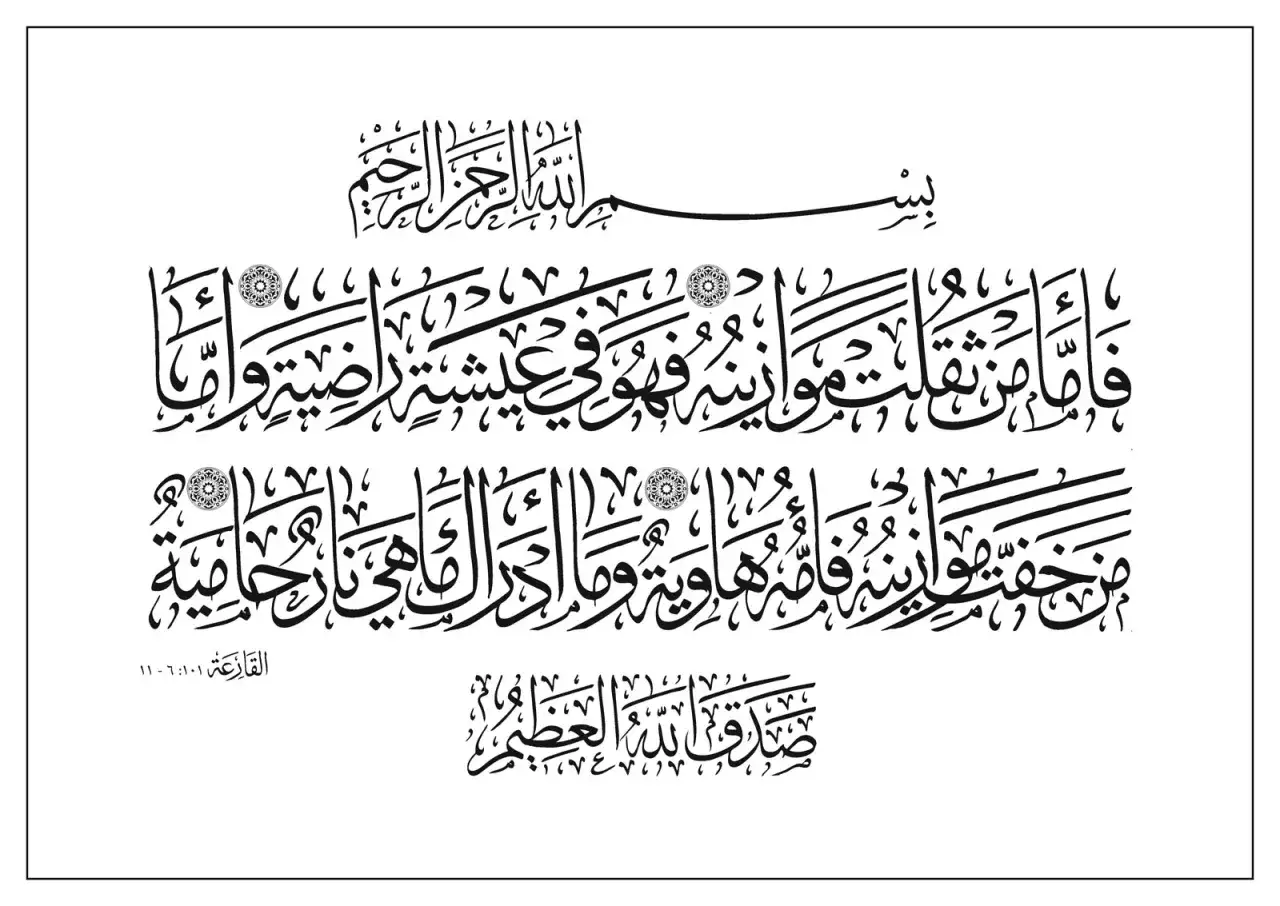 بِسْمِ اللَّهِ الرَّحْمَنِ الرَّحِيمِ
فَأَمَّا مَنْ ثَقُلَتْ مَوَازِينُهُ فَهُوَ فِي عِيشَةٍ رَاضِيَةٍ وَأَمَّا
مَنْ خَفَّتْ مَوَازِينُهُ فَأُمُّهُ هَاوِيَةٌ وَمَا أَدْرَاكَ مَا هِيَ نَارٌ حَامِيَةٌ
القَارِعَة ١٠١: ٦ - ١١
صَدَقَ اللَّهُ الْعَظِيمُ